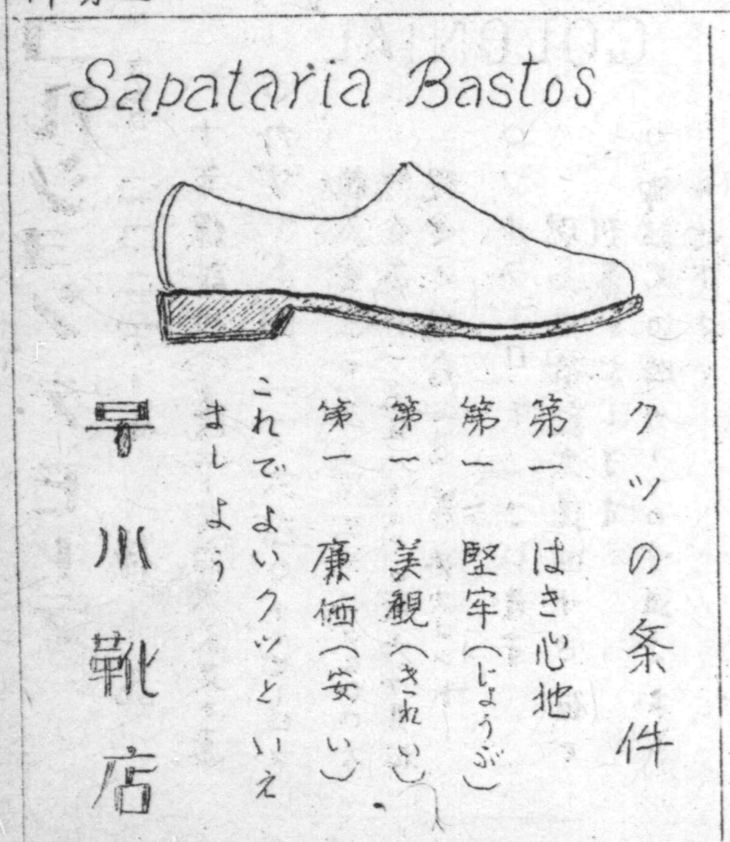 Sapataria Bastos
クツの条件
第一 はき心地
第一 堅牢(じょうぶ)
第一 美観(きれい)
第一 廉価(安い)
これでよいクツといえ
ましよう
早川靴店